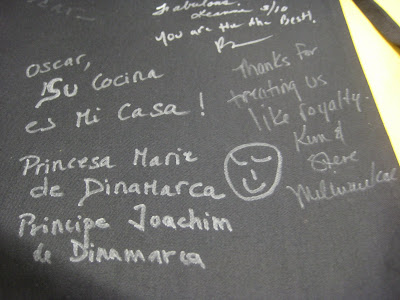 Fabulous
5/10
You are the the Best!
Oscar,
Su Cocina
es Mi Casa!
Princesa Marie
de Dinamarca
Principe Joachim
de Dinamarca
Thanks for
treating us
like royalty.
Kim &
Milwaukee